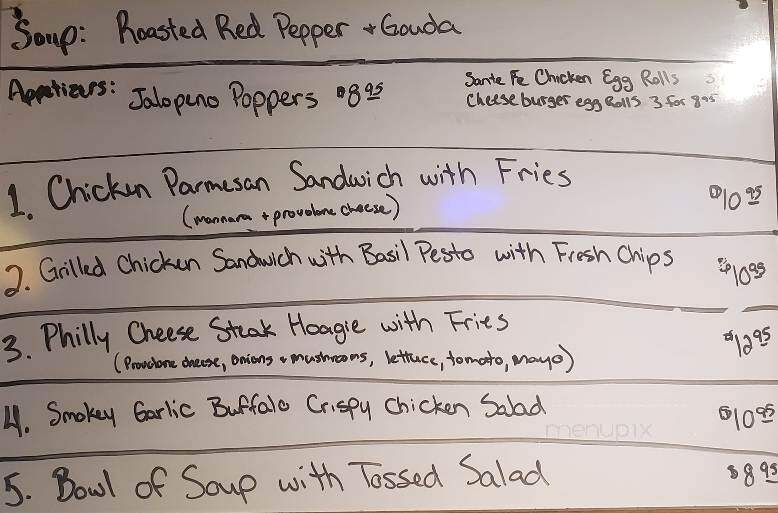 Soup: Roasted Red Pepper + Gouda
Appetizers: Jalopeno Poppers $8.95
Sante Fe Chicken Egg Rolls
Cheeseburger egg Rolls 3 for 8.95
1. Chicken Parmesan Sandwich with Fries $10.95
(marinara + provolone cheese)
2. Grilled Chicken Sandwich with Basil Pesto with Fresh Chips $10.95
3. Philly Cheese Steak Hoagie with Fries $12.95
(Provolone cheese, onions + mushrooms, lettuce, tomato, mayo)
4. Smokey Garlic Buffalo Crispy Chicken Salad $10.95
menupix
5. Bowl of Soup with Tossed Salad $8.95